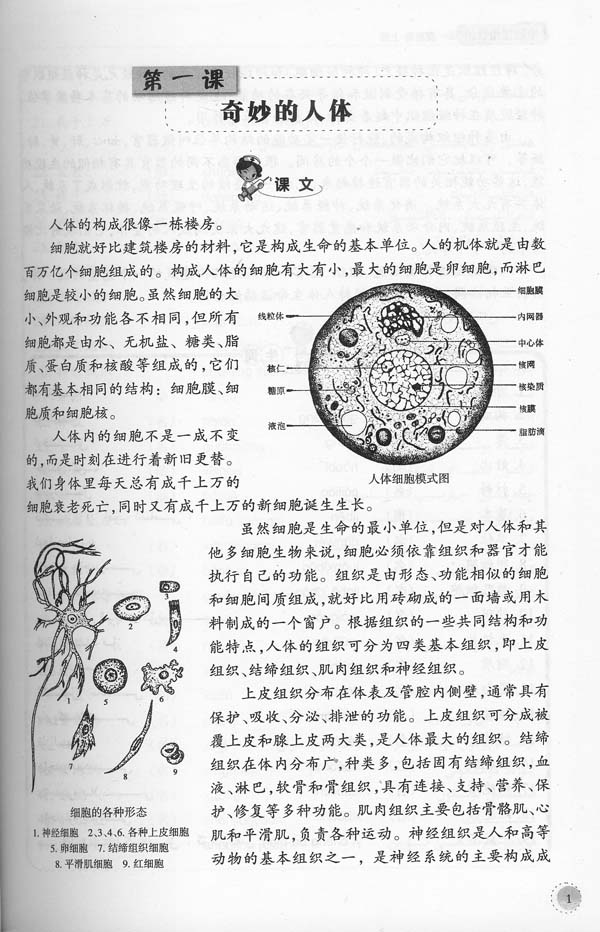 第一课
奇妙的人体
课文
人体的构成很像一栋楼房。
细胞就好比建筑楼房的材料,它是构成生命的基本单位。人的机体就是由数
百万亿个细胞组成的。构成人体的细胞有大有小,最大的细胞是卵细胞,而淋巴
细胞是较小的细胞。虽然细胞的大
小、外观和功能各不相同,但所有
细胞都是由水、无机盐、糖类、脂
质、蛋白质和核酸等组成的,它们
都有基本相同的结构:细胞膜、细
胞质和细胞核。
人体内的细胞不是一成不变
的,而是时刻在进行着新旧更替。
我们身体里每天总有成千上万的
细胞衰老死亡,同时又有成千上万的新细胞诞生生长。
线粒体
核仁
糖原
液泡
细胞膜
内网器
中心体
核网
核染质
核膜
脂肪滴
人体细胞模式图
虽然细胞是生命的最小单位,但是对人体和其
他多细胞生物来说,细胞必须依靠组织和器官才能
执行自己的功能。组织是由形态、功能相似的细胞
和细胞间质组成,就好比用砖砌成的一面墙或用木
料制成的一个窗户。根据组织的一些共同结构和功
能特点,人体的组织可分为四类基本组织,即上皮
组织、结缔组织、肌肉组织和神经组织。
上皮组织分布在体表及管腔内侧壁,通常具有
保护、吸收、分泌、排泄的功能。上皮组织可分成被
覆上皮和腺上皮两大类,是人体最大的组织。结缔
组织在体内分布广,种类多,包括固有结缔组织,血
液、淋巴,软骨和骨组织,具有连接、支持、营养、保
护、修复等多种功能。肌肉组织主要包括骨骼肌、心
肌和平滑肌,负责各种运动。神经组织是人和高等
动物的基本组织之一,是神经系统的主要构成成
1
2
3
4
5
6
7
8
9
细胞的各种形态
1. 神经细胞 2、3、4、6. 各种上皮细胞
5. 卵细胞 7. 结缔组织细胞
8. 平滑肌细胞 9. 红细胞
1